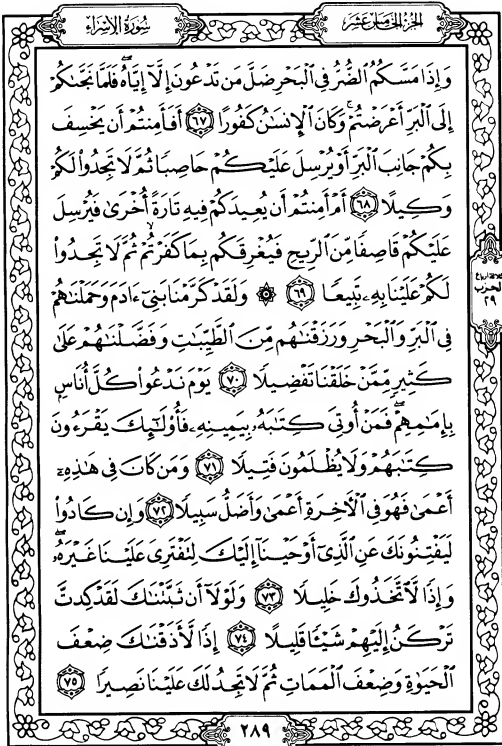 الجزء الخامس عشر
سورة الإسراء
وَإِذَا مَسَّكُمُ ٱلضُّرُّ فِي ٱلْبَحْرِ ضَلَّ مَن تَدْعُونَ إِلَّآ إِيَّاهُ ۖ فَلَمَّا نَجَّىٰكُمْ
إِلَى ٱلْبَرِّ أَعْرَضْتُمْ ۚ وَكَانَ ٱلْإِنسَٰنُ كَفُورًا ٦٧ أَفَأَمِنتُمْ أَن يَخْسِفَ
بِكُمْ جَانِبَ ٱلْبَرِّ أَوْ يُرْسِلَ عَلَيْكُمْ حَاصِبًا ثُمَّ لَا تَجِدُوا۟ لَكُمْ
وَكِيلًا ٦٨ أَمْ أَمِنتُمْ أَن يُعِيدَكُمْ فِيهِ تَارَةً أُخْرَىٰ فَيُرْسِلَ
عَلَيْكُمْ قَاصِفًا مِّنَ ٱلرِّيحِ فَيُغْرِقَكُم بِمَا كَفَرْتُمْ ۙ ثُمَّ لَا تَجِدُوا۟
لَكُمْ عَلَيْنَا بِهِۦ تَبِيعًا ٦٩ ۞ وَلَقَدْ كَرَّمْنَا بَنِىٓ ءَادَمَ وَحَمَلْنَٰهُمْ
فِي ٱلْبَرِّ وَٱلْبَحْرِ وَرَزَقْنَٰهُم مِّنَ ٱلطَّيِّبَٰتِ وَفَضَّلْنَٰهُمْ عَلَىٰ
كَثِيرٍ مِّمَّنْ خَلَقْنَا تَفْضِيلًا ٧٠ يَوْمَ نَدْعُوا۟ كُلَّ أُنَاسٍۭ
بِإِمَٰمِهِمْ ۖ فَمَنْ أُوتِيَ كِتَٰبَهُۥ بِيَمِينِهِۦ فَأُو۟لَٰٓئِكَ يَقْرَءُونَ
كِتَٰبَهُمْ وَلَا يُظْلَمُونَ فَتِيلًا ٧١ وَمَن كَانَ فِي هَٰذِهِۦٓ
أَعْمَىٰ فَهُوَ فِي ٱلْأَخِرَةِ أَعْمَىٰ وَأَضَلُّ سَبِيلًا ٧٢ وَإِن كَادُوا۟
لَيَفْتِنُونَكَ عَنِ ٱلَّذِىٓ أَوْحَيْنَآ إِلَيْكَ لِتَفْتَرِىَ عَلَيْنَا غَيْرَهُۥ ۖ
وَإِذًا لَّٱتَّخَذُوكَ خَلِيلًا ٧٣ وَلَوْلَآ أَن ثَبَّتْنَٰكَ لَقَدْ كِدتَّ
تَرْكَنُ إِلَيْهِمْ شَيْـًٔا قَلِيلًا ٧٤ إِذًا لَّأَذَقْنَٰكَ ضِعْفَ
ٱلْحَيَوٰةِ وَضِعْفَ ٱلْمَمَاتِ ثُمَّ لَا تَجِدُ لَكَ عَلَيْنَا نَصِيرًا ٧٥
الحزب
٢٩
٢٨٩